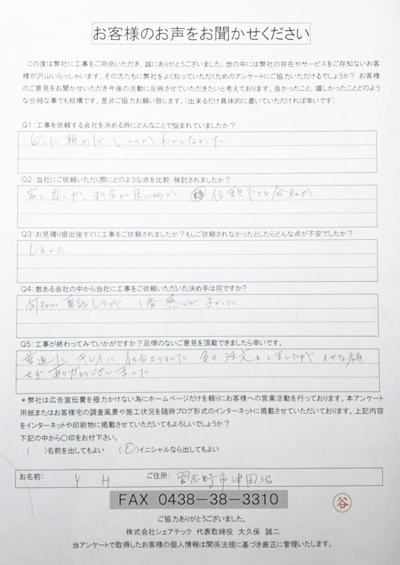 お客様のお声をお聞かせください
この度は弊社に工事をご用命いただき、誠にありがとうございました。世の中には弊社の存在やサービスをご存知ないお客
様が沢山いらっしゃいます。その方たちに弊社をよく知っていただくためのアンケートにご協力いただけるでしょうか? お客様
のご意見をお聞かせいただき今後の活動に反映させていただきたいと考えております。良かったこと、嬉しかったことどのよう
な些細な事でも結構です、是非ご協力お願い致します。(出来るだけ具体的に書いていただければ幸いです)
Q1:工事を依頼する会社を決める時にどんなことで悩まれていましたか?
わからなかった
Q2:当社にご依頼いただく際にどのような点を比較・検討されましたか?
信頼できる会社か
Q3:お見積り提出後すぐに工事をご依頼されましたか?もしご依頼されなかったとしたらどんな点が不安でしたか?
しました
Q4:数ある会社の中から当社に工事をご依頼いただいた決め手は何ですか?
電話したが 1番感じがよかった
Q5:工事が終わってみていかがですか?忌憚のないご意見を頂戴できましたら幸いです。
キレイに 注文をしましたが イヤな顔
せず ありがとうございました
*弊社は広告宣伝費を極力かけない為にホームページだけを頼りにお客様への営業活動を行っております。本アンケート
用紙またはお客様宅の調査風景や施工状況を随時ブログ形式のインターネットに掲載させていただいております。上記内容
をインターネットや印刷物に掲載させていただいてもよろしいでしょうか?
下記の中から〇印をお付下さい。
( )名前を出してもよい (○)イニシャルなら出してもよい
お名前: Y H ご住所: 習志野市津田沼
FAX 0438-38-3310
谷
ご協力ありがとうございました。
株式会社シェアテック 代表取締役 大久保 誠二
当アンケートで取得したお客様の個人情報は関係法規に基づき厳正に管理いたします。